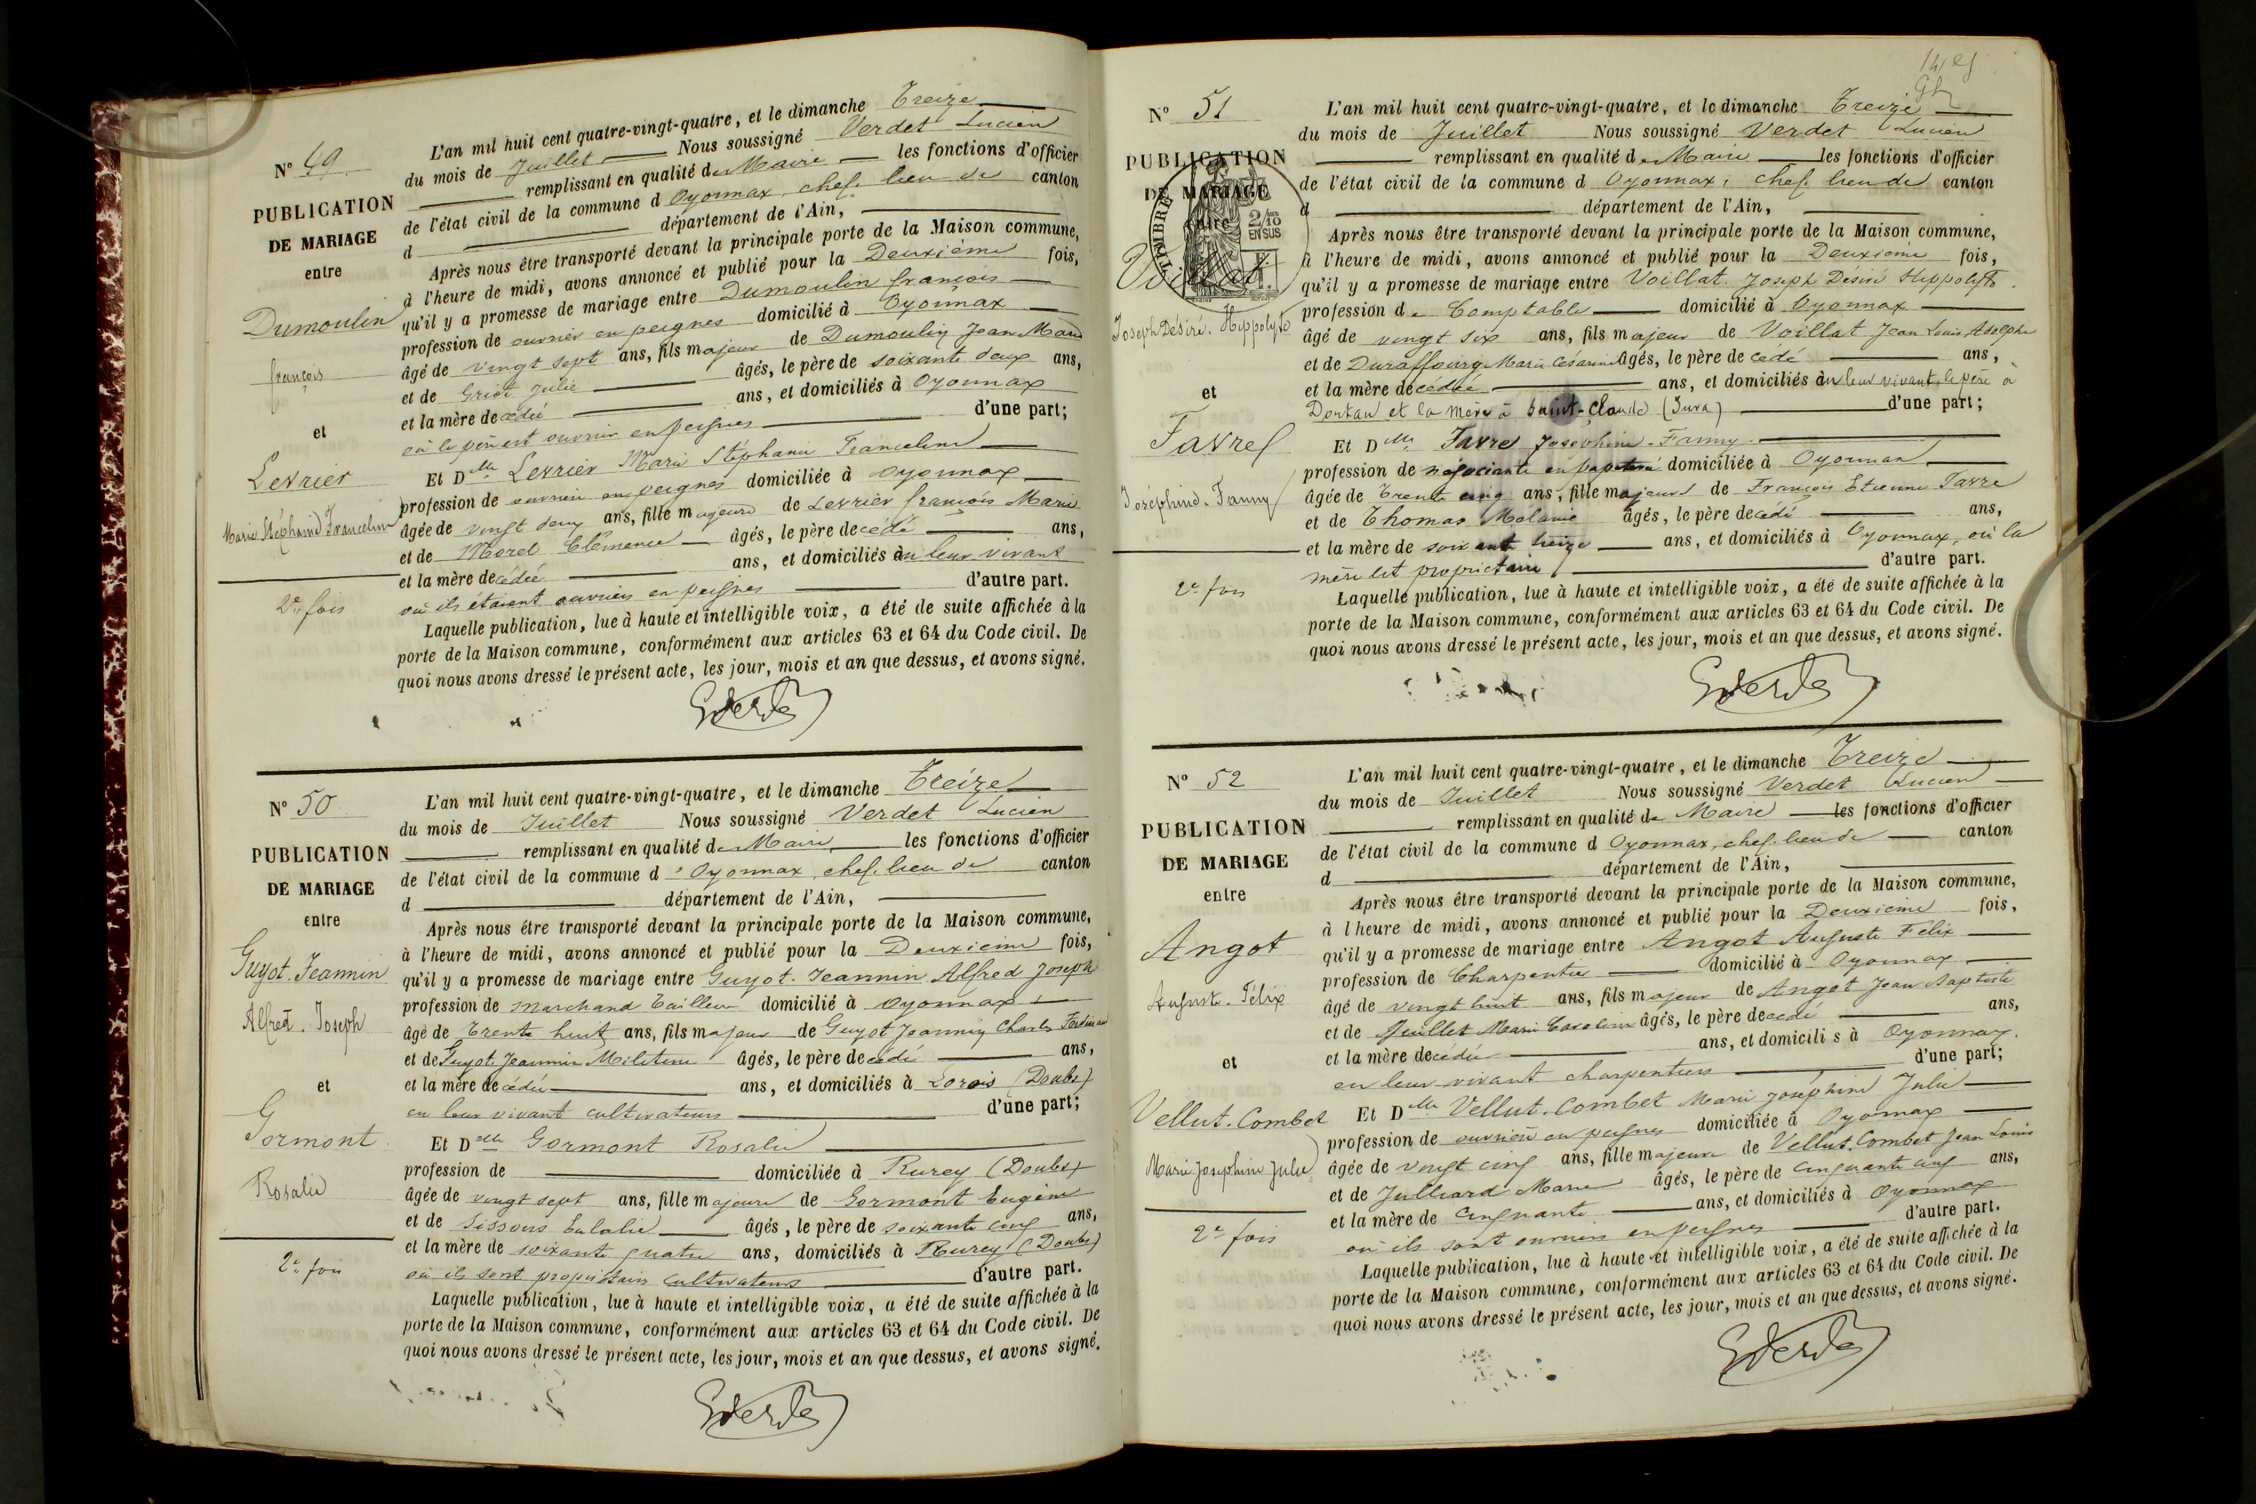 N° 49
PUBLICATION
DE MARIAGE
entre
Dumoulin
françois
et
Levrier
Marie Stéphanie Franceline
2e fois
L'an mil huit cent quatre-vingt-quatre, et le dimanche Treize
du mois de Juillet Nous soussigné Verdet Lucien
remplissant en qualité de Maire les fonctions d'officier
de l'état civil de la commune d Oyonnax, chef. lieu de canton
d département de l'Ain,
Après nous être transporté devant la principale porte de la Maison commune,
à l'heure de midi, avons annoncé et publié pour la Deuxième fois,
qu'il y a promesse de mariage entre Dumoulin françois
profession de ouvrier en peignes domicilié à Oyonnax
âgé de vingt sept ans, fils majeur de Dumoulin Jean Marie
et de Griot Julie âgés, le père de soixante deux ans,
et la mère décédée ans, et domiciliés à Oyonnax
où le père est ouvrier en peignes d'une part;
Et Dlle Levrier Marie Stéphanie Franceline
profession de ouvrière en peignes domiciliée à Oyonnax
âgée de vingt deux ans, fille majeure de Levrier françois Marie
et de Morel Clémence âgés, le père decédé ans,
et la mère decédée ans, et domiciliés à en leur vivant
où ils étaient ouvriers en peignes d'autre part.
Laquelle publication, lue à haute et intelligible voix, a été de suite affichée à la
porte de la Maison commune, conformément aux articles 63 et 64 du Code civil. De
quoi nous avons dressé le présent acte, les jour, mois et an que dessus, et avons signé.
N° 50
PUBLICATION
DE MARIAGE
entre
Guyot. Jeannin
Alfred. Joseph
et
Gormont
Rosalie
2e fois
L'an mil huit cent quatre-vingt-quatre, et le dimanche Treize
du mois de Juillet Nous soussigné Verdet Lucien
remplissant en qualité de Maire les fonctions d'officier
de l'état civil de la commune d'Oyonnax, chef. lieu de canton
d département de l'Ain,
Après nous être transporté devant la principale porte de la Maison commune,
à l'heure de midi, avons annoncé et publié pour la Deuxième fois,
qu'il y a promesse de mariage entre Guyot. Jeannin Alfred Joseph
profession de Marchand Tailleur domicilié à Oyonnax
âgé de Trente huit ans, fils majeur de Guyot Jeannin Charles
et de Guyot Jeannin âgés, le père decédé ans,
et la mère decédée ans, et domiciliés à (Doubs)
en leur vivant cultivateurs d'une part;
Et Dlle Gormont Rosalie
profession de domiciliée à Rurey (Doubs)
âgée de vingt sept ans, fille majeure de Gormont Eugène
et de Eulalie âgés, le père de soixante cinq ans,
et la mère de soixante quatre ans, domiciliés à Rurey (Doubs)
où ils sont propriétaires cultivateurs d'autre part.
Laquelle publication, lue à haute et intelligible voix, a été de suite affichée à la
porte de la Maison commune, conformément aux articles 63 et 64 du Code civil. De
quoi nous avons dressé le présent acte, les jour, mois et an que dessus, et avons signé.
N° 51
PUBLICATION
DE MARIAGE
entre
TIMBRE
2/10 EN SUS
Voillat.
Joseph Désiré. Hippolyte
et
Favre
Joséphine. Fanny
2e fois
L'an mil huit cent quatre-vingt-quatre, et le dimanche Treize
du mois de Juillet Nous soussigné Verdet Lucien
remplissant en qualité de Maire les fonctions d'officier
de l'état civil de la commune d Oyonnax, chef. lieu de canton
d département de l'Ain,
Après nous être transporté devant la principale porte de la Maison commune,
à l'heure de midi, avons annoncé et publié pour la Deuxième fois,
qu'il y a promesse de mariage entre Voillat. Joseph Désiré Hippolyte.
profession de Comptable domicilié à Oyonnax
âgé de vingt six ans, fils majeur de Voillat Jean Louis Adolphe
et de Duraffourg Marie Césarine âgés, le père decédé ans,
et la mère decédée ans, et domiciliés à en leur vivant, le père à
Dortan et la mère à Saint-Claude (Jura) d'une part;
Et Dlle Favre Joséphine. Fanny
profession de négociante en domiciliée à Oyonnax
âgée de Trente cinq ans, fille majeure de François Etienne Favre
et de Thomas Mélanie âgés, le père decédé ans,
et la mère de soixante treize ans, et domiciliés à Oyonnax, où la
mère est propriétaire d'autre part.
Laquelle publication, lue à haute et intelligible voix, a été de suite affichée à la
porte de la Maison commune, conformément aux articles 63 et 64 du Code civil. De
quoi nous avons dressé le présent acte, les jour, mois et an que dessus, et avons signé.
N° 52
PUBLICATION
DE MARIAGE
entre
Angot
Auguste. Félix
et
Vellut. Combet
Marie Josephine Julie
2e fois
L'an mil huit cent quatre-vingt-quatre, et le dimanche Treize
du mois de Juillet Nous soussigné Verdet Lucien
remplissant en qualité de Maire les fonctions d'officier
de l'état civil de la commune d Oyonnax, chef. lieu de canton
d département de l'Ain,
Après nous être transporté devant la principale porte de la Maison commune,
à l'heure de midi, avons annoncé et publié pour la Deuxième fois,
qu'il y a promesse de mariage entre Angot Auguste Félix
profession de Charpentier domicilié à Oyonnax
âgé de vingt huit ans, fils majeur de Angot Jean Baptiste
et de Marie Caroline âgés, le père decédé ans,
et la mère decédée ans, et domiciliés à Oyonnax.
en leur vivant charpentiers d'une part;
Et Dlle Vellut. Combet Marie Joséphine Julie
profession de ouvrière en peignes domiciliée à Oyonnax
âgée de vingt cinq ans, fille majeure de Vellut. Combet Jean Louis
et de Julliard Marie âgés, le père de cinquante cinq ans,
et la mère de cinquante ans, et domiciliés à Oyonnax
où ils sont ouvriers en peignes d'autre part.
Laquelle publication, lue à haute et intelligible voix, a été de suite affichée à la
porte de la Maison commune, conformément aux articles 63 et 64 du Code civil. De
quoi nous avons dressé le présent acte, les jour, mois et an que dessus, et avons signé.